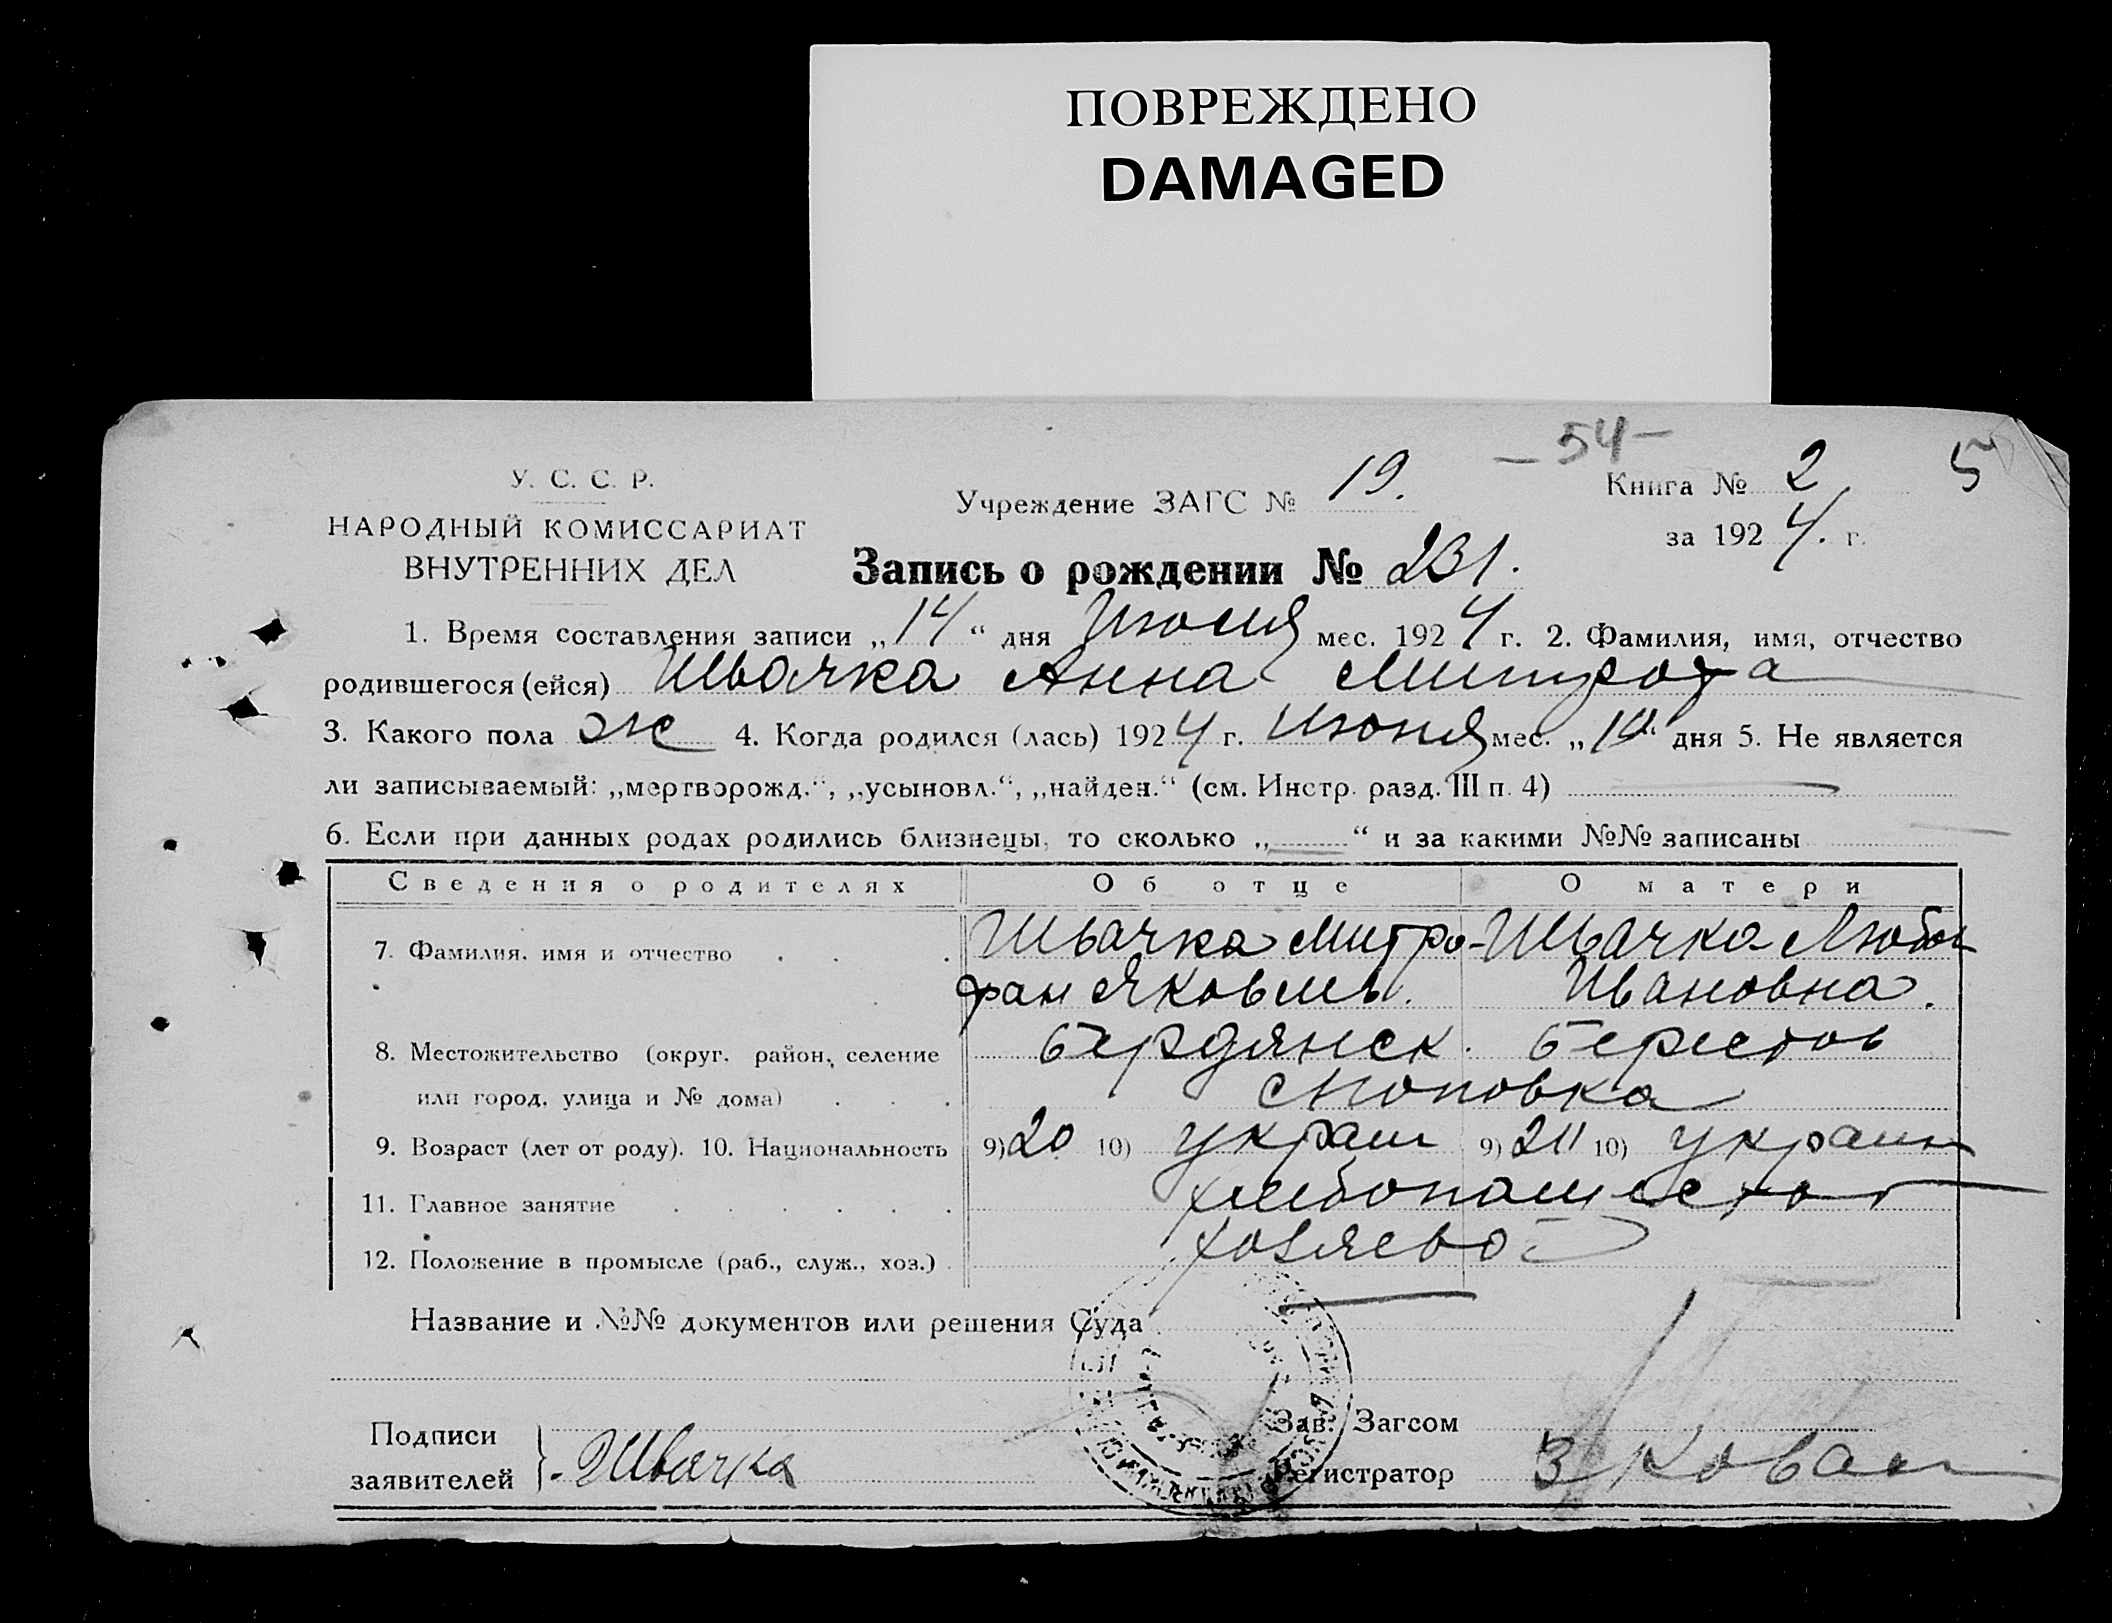 ПОВРЕЖДЕНО
DAMAGED
-54-
У. С. С. Р.
НАРОДНЫЙ КОМИССАРИАТ
ВНУТРЕННИХ ДЕЛ
Учреждение ЗАГС № 19.
Книга № 2 5
за 1924. г.
Запись о рождении № 231.
1. Время составления записи „14“ дня Июня мес. 1924 г. 2. Фамилия, имя, отчество
родившегося (ейся) Швачка Анна Митрофа
3. Какого пола ж 4. Когда родился (лась) 1924 г. Июня мес. „10“ дня 5. Не является
ли записываемый: „мертворожд.“, „усыновл.“, „найден.“ (см. Инстр. разд. III п. 4)
6. Если при данных родах родились близнецы, то сколько „ “ и за какими №№ записаны
Сведения о родителях Об отце О матери
7. Фамилия, имя и отчество Швачка Митро- Швачка Любов
фан Яковлев. Ивановна.
8. Местожительство (округ, район, селение Бердянск. Берестов
или город, улица и № дома)
9. Возраст (лет от роду). 10. Национальность 9) 20 10) украин 9) 10) украин
11. Главное занятие хлебопашество
12. Положение в промысле (раб., служ., хоз.)
Название и №№ документов или решения Суда
Подписи
заявителей Швачка
Зав. Загсом
Регистратор